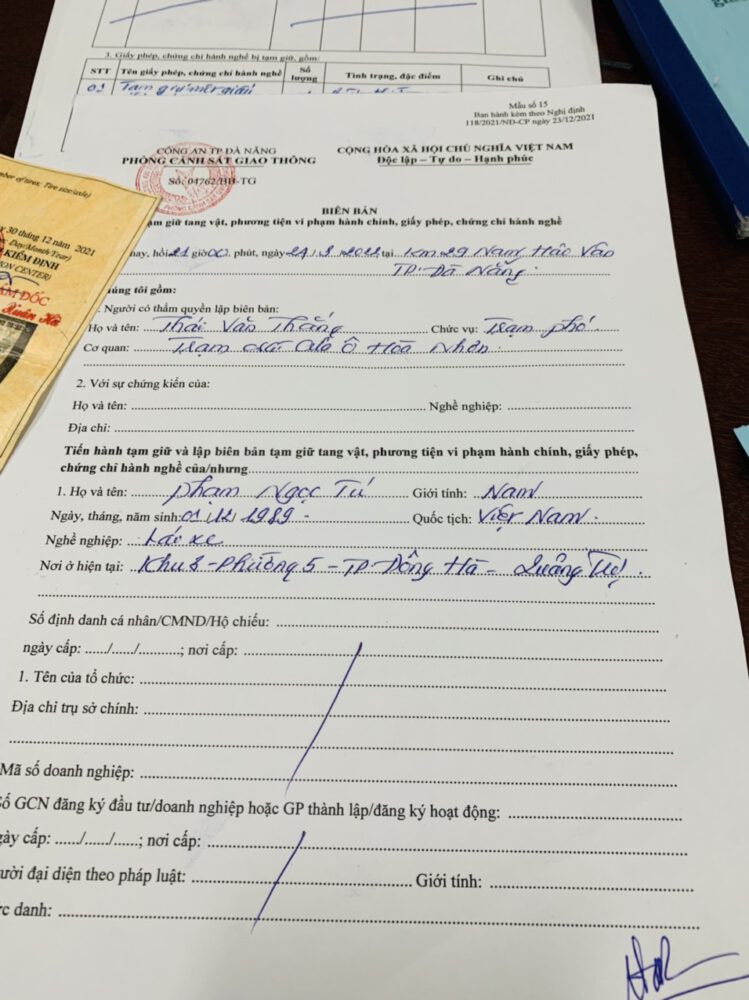 3. Giấy phép, chứng chỉ hành nghề bị tạm giữ, gồm:
STT Tên giấy phép, chứng chỉ hành nghề Số lượng Tình trạng, đặc điểm Ghi chú
01 Tạm giữ một giấy
Mẫu số 15
Ban hành kèm theo Nghị định
118/2021/NĐ-CP ngày 23/12/2021
CÔNG AN TP ĐÀ NẴNG
PHÒNG CẢNH SÁT GIAO THÔNG
CỘNG HÒA XÃ HỘI CHỦ NGHĨA VIỆT NAM
Độc lập – Tự do – Hạnh phúc
Số: 04762/BB-TG
BIÊN BẢN
ạm giữ tang vật, phương tiện vi phạm hành chính, giấy phép, chứng chỉ hành nghề
nay, hồi 21 giờ 00 phút, ngày 24/3/2022 tại Km 29 Nam Hải Vân
TP. Đà Nẵng.
húng tôi gồm:
. Người có thẩm quyền lập biên bản:
Họ và tên: Thái Văn Thắng Chức vụ: Trạm phó
Cơ quan: Trạm Cửa Ô Hòa Nhơn.
2. Với sự chứng kiến của:
Họ và tên: Nghề nghiệp:
Địa chỉ:
Tiến hành tạm giữ và lập biên bản tạm giữ tang vật, phương tiện vi phạm hành chính, giấy phép,
chứng chỉ hành nghề của/nhưng
1. Họ và tên: Phạm Ngọc Tú Giới tính: Nam
Ngày, tháng, năm sinh: 01/12/1989 - Quốc tịch: Việt Nam.
Nghề nghiệp: Lái xe
Nơi ở hiện tại: Khu 8 - Phường 5 - TP Đông Hà - Quảng Trị.
Số định danh cá nhân/CMND/Hộ chiếu:
ngày cấp: ...../...../..........; nơi cấp:
1. Tên của tổ chức:
Địa chỉ trụ sở chính:
Mã số doanh nghiệp:
ố GCN đăng ký đầu tư/doanh nghiệp hoặc GP thành lập/đăng ký hoạt động:
gày cấp: ...../...../......; nơi cấp:
ười đại diện theo pháp luật: Giới tính:
c danh:
mber of tires, Tire size/axle)
y 30 tháng 12 năm 2021
Day/Month/Year)
KIỂM ĐỊNH
ION CENTER)
ÁM ĐỐC
Xuân Hà